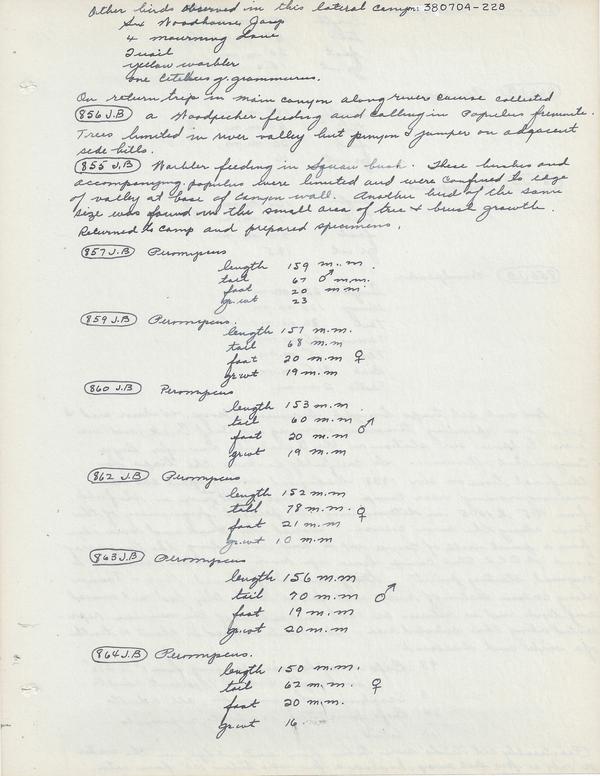 Other birds observed in this lateral canyon: 380704-228
Six Woodhouse Jays
4 mourning Dove
Quail
yellow warbler
one Citellus g. grammurus.
On return trip in main canyon along river course collected
856 J.B a Woodpecker feeding and calling in Populus fremonte.
Trees limited in river valley but pinyon & juniper on adjacent
side hills.
855 J.B Warbler feeding in Squaw bush. These bushes and
accompanying populus were limited and were confined to edge
of valley at base of canyon wall. Another bird of the same
size was found in the small area of tree & brush growth.
Returned to camp and prepared specimens.
857 J.B Peromyscus
length 159 m.m.
tail 67 m.m. ♂
foot 20 m.m.
gr.wt 23
859 J.B Peromyscus.
length 157 m.m.
tail 68 m.m
foot 20 m.m ♀
gr.wt 19 m.m
860 J.B Peromyscus
length 153 m.m
tail 60 m.m. ♂
foot 20 m.m
gr.wt 19 m.m
862 J.B Peromyscus
length 152 m.m
tail 78 m.m. ♀
foot 21 m.m
gr.wt 10 m.m
863 J.B Peromyscus
length 156 m.m
tail 70 m.m. ♂
foot 19 m.m
gr.wt 20 m.m
864 J.B Peromyscus.
length 150 m.m.
tail 62 m.m. ♀
foot 20 m.m.
gr.wt 16